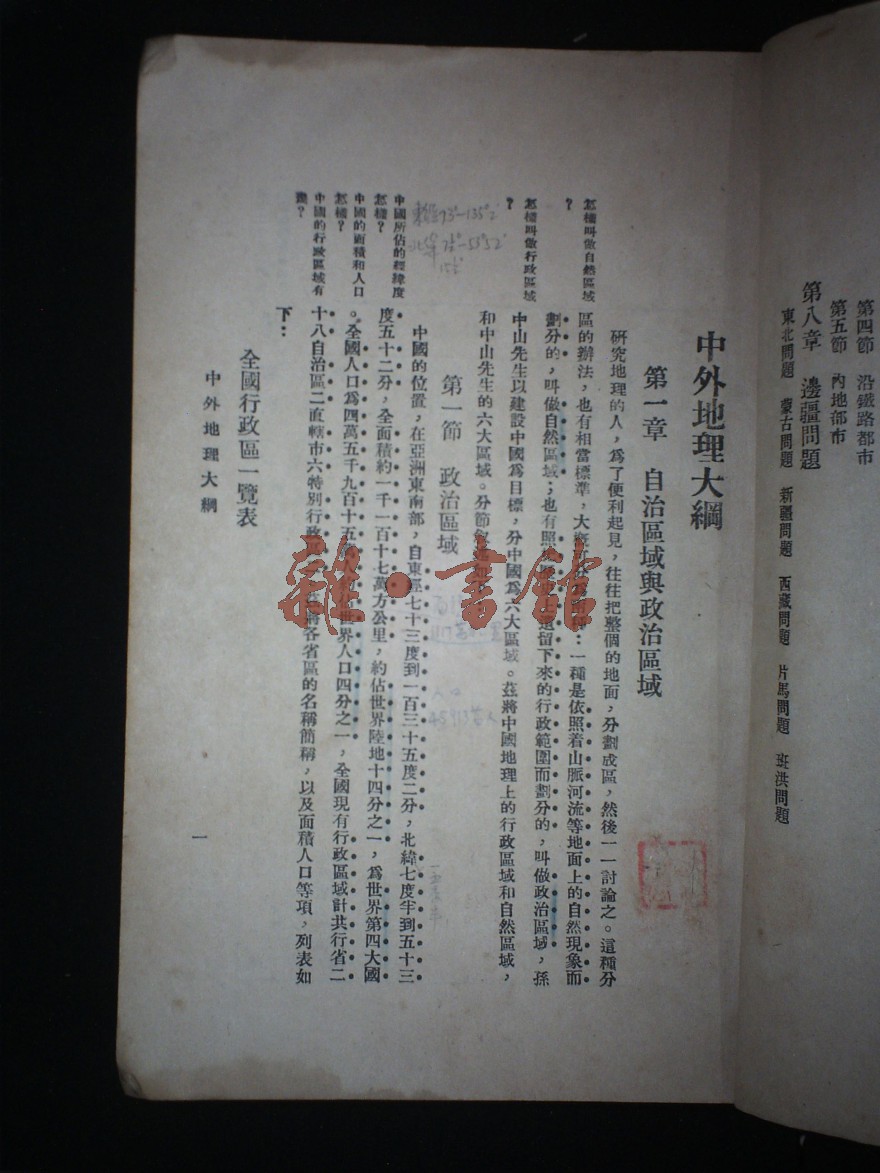 第四節 沿鐵路都市
第五節 內地部市
第八章 邊疆問題
東北問題 蒙古問題 新疆問題 西藏問題 片馬問題 班洪問題
中外地理大綱
第一章 自治區域與政治區域
研究地理的人，爲了便利起見，往往把整個的地面，分劃成區，然後一一討論之。這種分
怎樣叫做自然區域
？
區的辦法，也有相當標準，大概可分爲兩種：一種是依照着山脈河流等地面上的自然現象而
劃分的，叫做自然區域；也有照遺留下來的行政範圍而劃分的，叫做政治區域，孫
怎樣叫做行政區域
？
中山先生以建設中國爲目標，分中國爲六大區域。茲將中國地理上的行政區域和自然區域，
和中山先生的六大區域。分節敘述如下
第一節 政治區域
中國的位置，在亞洲東南部，自東經七十三度到一百三十五度二分，北緯七度半到五十三
中國所佔的經緯度
怎樣？
度五十二分，全面積約一千一百十七萬方公里，約佔世界陸地十四分之一，爲世界第四大國
中國的面積和人口
怎樣？
。全國人口爲四萬五千九百十五萬世界人口四分之一，全國現有行政區域計共行省二
中國的行政區域有
幾？
十八自治區二直轄市六特別行政區將各省區的名稱簡稱，以及面積人口等項，列表如
下：
全國行政區一覽表
中外地理大綱
一
東經73°-135°2′
雜·書館